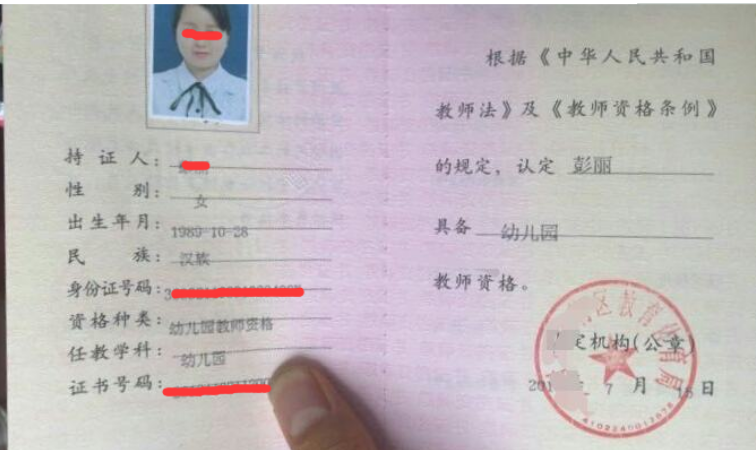 持 证 人：
性 别： 女
出生年月： 1989-10-28
民 族： 汉族
身份证号码：
资格种类： 幼儿园教师资格
任教学科： 幼儿园
证书号码：
根据《中华人民共和国
教师法》及《教师资格条例》
的规定，认定 彭丽
具备 幼儿园
教师资格。
区教育体育局
定机构(公章)
201 7 月 15 日